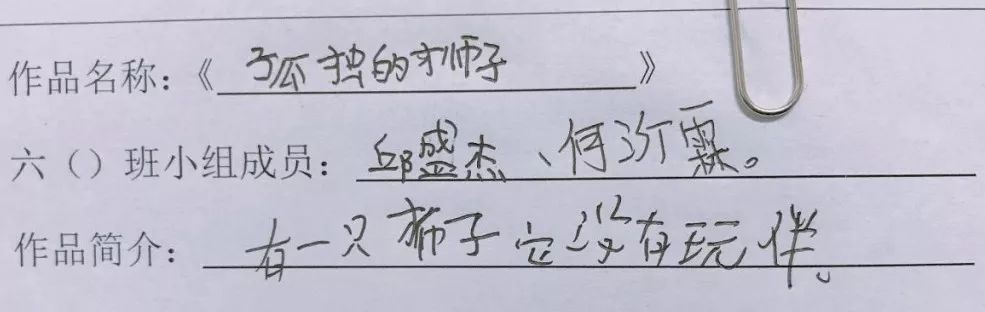 作品名称：《孤独的狮子》
六（）班小组成员：邱盛杰、何沂霖。
作品简介：有一只狮子它没有玩伴。